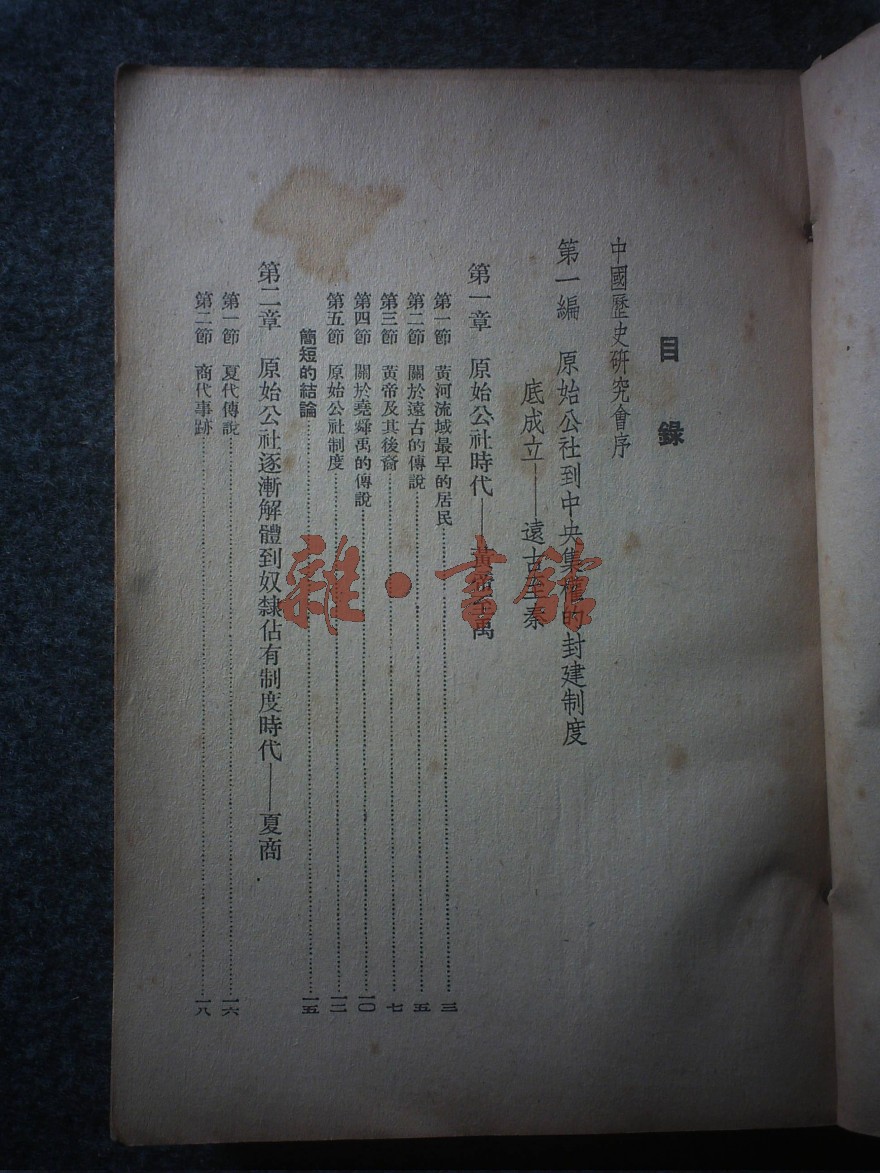 目錄
中國歷史研究會序
第一編 原始公社到中央集權的封建制度
底成立——遠古至秦
第一章 原始公社時代——黃帝至禹
第一節 黃河流域最早的居民……三
第二節 關於遠古的傳說……五
第三節 黃帝及其後裔……七
第四節 關於堯舜禹的傳說……一〇
第五節 原始公社制度……一二
簡短的結論……一五
第二章 原始公社逐漸解體到奴隸佔有制度時代——夏商
第一節 夏代傳說……一六
第二節 商代事跡……一八
雜·書館